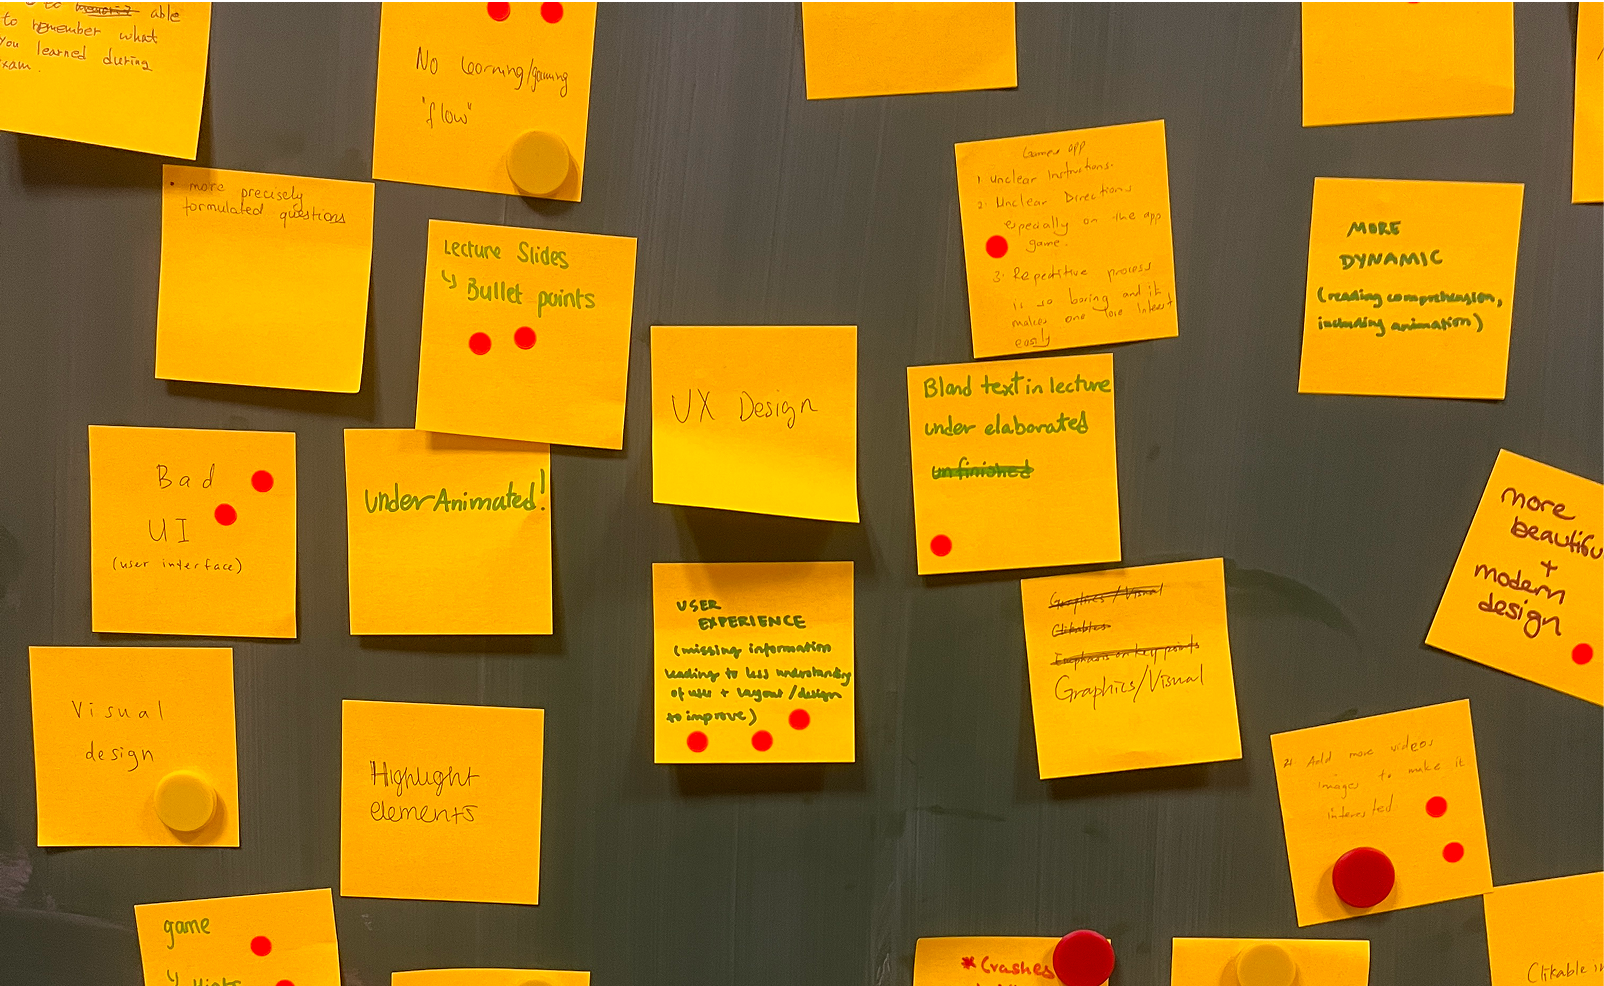 to able
to remember what
you learned during
exam.
No learning/gaming
"flow"
• more precisely
formulated questions
Lecture Slides
↳ Bullet points
Games app
1 Unclear Instructions.
2. Unclear Directions
especially on the app
game.
3. Repetitive process
is so boring and it
makes one lose interest
easily
MORE
DYNAMIC
(reading comprehension,
including animation)
UX Design
Bland text in lecture
under elaborated
unfinished
Bad
UI
(user interface)
Under Animated!
more
beautifu
+
modern
design
USER
EXPERIENCE
(missing information
leading to less understanding
of user + layout/design
to improve)
Graphics/Visual
Clikables
Emphasis on key points
Graphics/Visual
Visual
design
Highlight
elements
Add more videos
images to make it
interested
game
↳ Hints
* Crashes
Clikable in